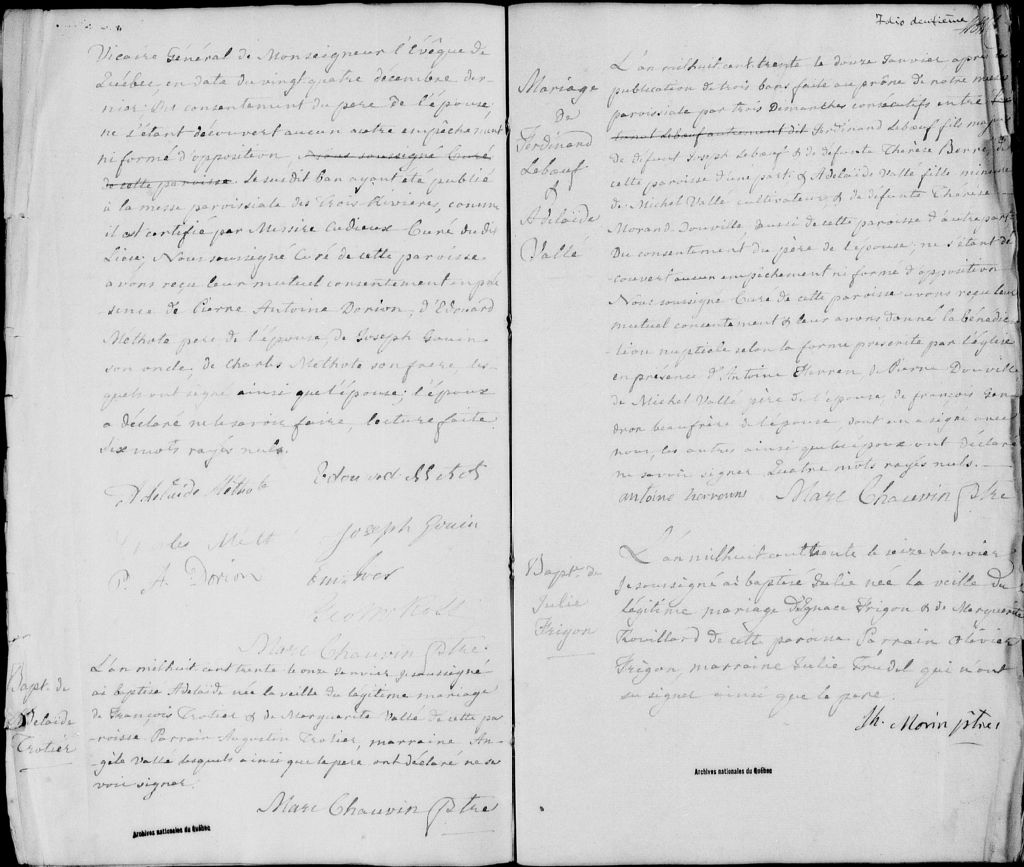 Vicaire Général de Monseigneur l'Évêque de
Québec, en date du vingt quatre décembre der-
nier; Du consentement du pere de l'épouse;
ne s'étant découvert aucun autre empêchement
ni formé d'opposition, Nous soussigné Curé
de cette paroisse. Le susdit ban ayant été publié
à la messe paroissiale des Trois-Rivières, comme
il est certifié par Messire Cadieux Curé du dit
Lieu, Nous soussigné Curé de cette paroisse
avons reçu leur mutuel consentement en pré
sence de Pierre Antoine Dorion, d'Edouard
Méthote pere de l'épouse, de Joseph Gouin
son oncle, de Charles Méthote son frere, les-
quels ont signé ainsi que l'épouse; l'époux
a déclaré ne le savoir faire, lecture faite
Six mots rayés nuls.
Adelaïde Méthote Edouard
Joseph Gouin
P. A. Dorion
Marc Chauvin Ptre
Bapt. de
Adelaïde
Trotier
L'an milhuit cent trente le onze Janvier Je soussigné
ai baptisé Adelaïde née la veille du légitime mariage
de François Trotier & de Marguerite Vallé de cette pa
roisse Parrain Augustin Trotier, marraine An-
gèle Vallé lesquels ainsi que le pere ont déclaré ne sa
voir signer.
Marc Chauvin Ptre
Archives nationales du Québec
Folio deuxième
Mariage
de
Ferdinand
Lebœuf
&
Adelaïde
Vallé
L'an milhuit cent trente le douze Janvier après la
publication de trois bans faite au prône de notre messe
paroissiale par trois Dimanches consécutifs entre
Lebœuf autrement dit Ferdinand Lebœuf fils majeur
de défunt Joseph Lebœuf & de défunte Thérèse
cette paroisse d'une part; & Adelaïde Vallé fille mineure
de Michel Vallé cultivateur & de défunte Thérèse
Morand Douville, aussi de cette paroisse d'autre part;
Du consentement du père de l'épouse; ne s'étant dé
couvert aucun empêchement ni formé d'opposition
Nous soussigné Curé de cette paroisse avons reçu leur
mutuel consentement & leur avons donné la bénédic
tion nuptiale selon la forme prescrite par l'église
en présence d'Antoine de Pierre Douville
de Michel Vallé père de l'épouse, de françois Gen
dron beaufrère de l'épouse, dont un a signé avec
nous, les autres ainsi que les époux ont déclaré
ne savoir signer Quatre mots rayés nuls.
antoine Marc Chauvin Ptre
Bapt. de
Julie
Frigon
L'an milhuit cent trente le seize Janvier
Je soussigné ai baptisé Julie née la veille du
légitime mariage d'Ignace Frigon & de Marguerite
Rouillard de cette paroisse Parrain Olivier
Frigon, marraine Julie Trudel qui n'ont
su signer ainsi que le pere.
Th. Morin ptre
Archives nationales du Québec